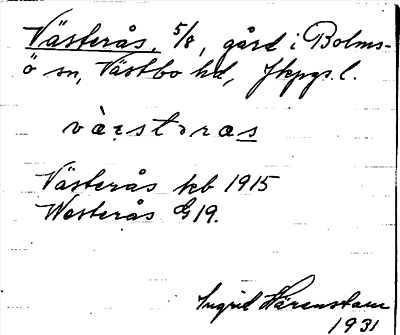 Västerås, 5/8, gård i Bolms-
ö sn, Västbo hd, Jkpgs. l.
Västerås kb 1915
Westerås G19.
Ingrid Härenstam
1931